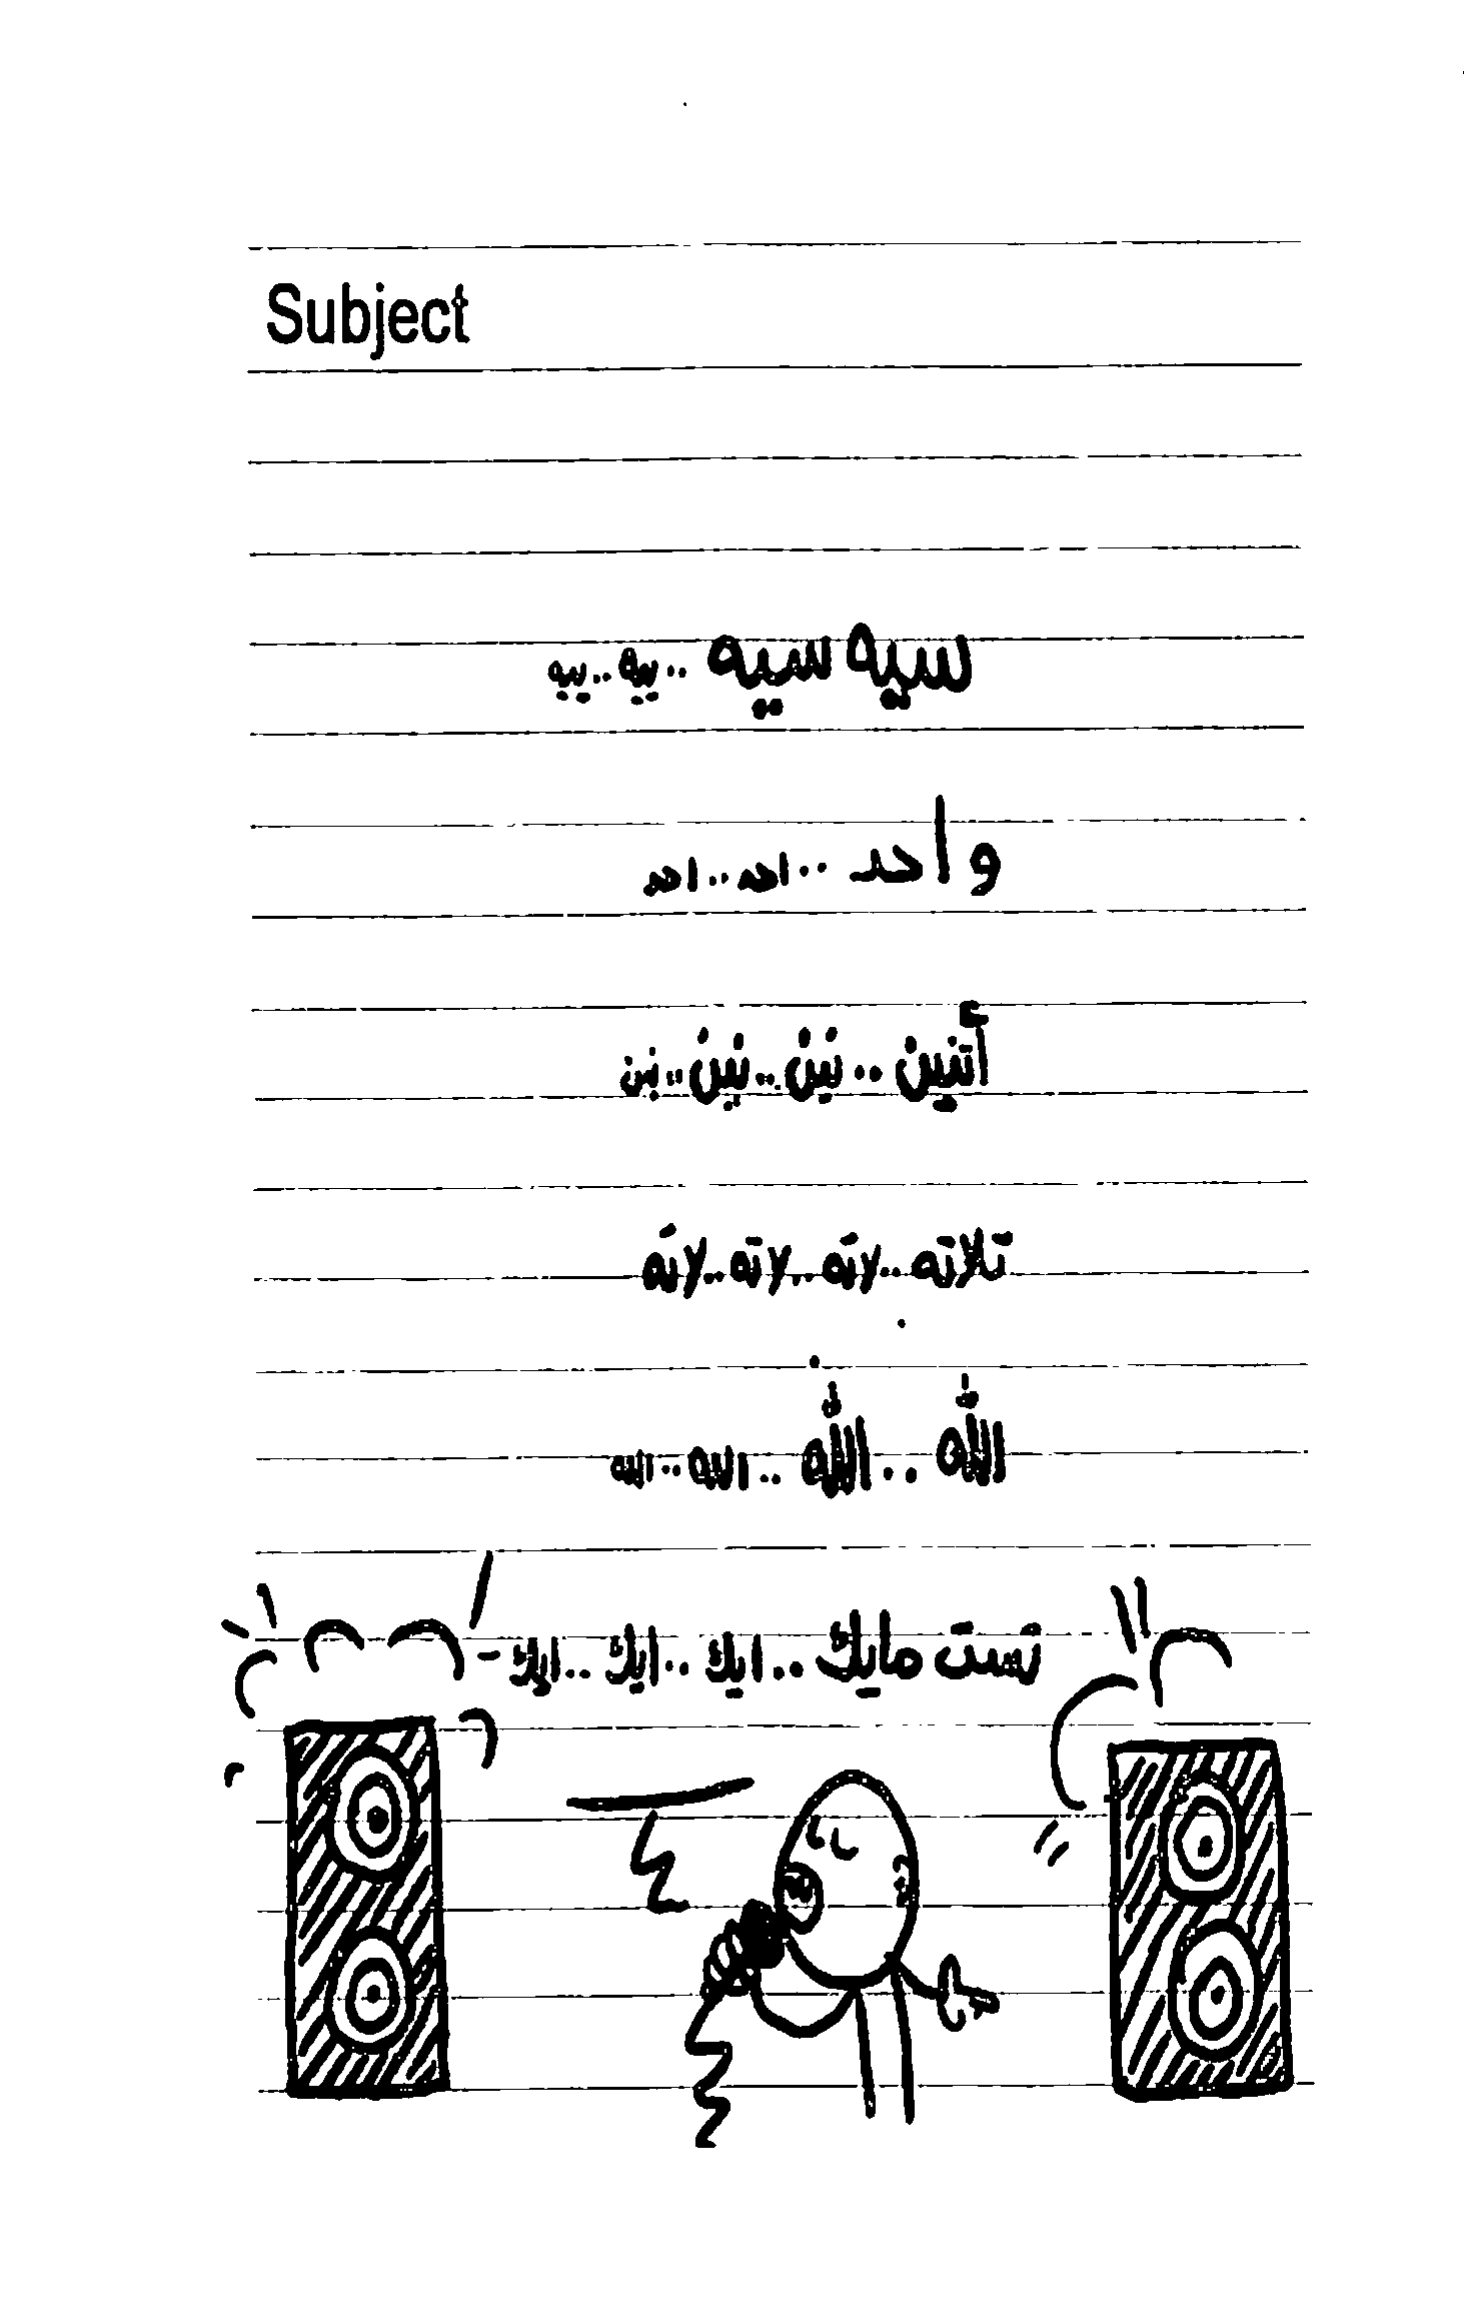 Subject
سيه سيه .. ييه .. ييه
واحد .. احد .. احد
أتنين .. نين .. نين .. نين
تلاته .. لاته .. لاته .. لاته
الله .. الله .. الله .. الله
تست مايك .. ايك .. ايك .. ايك -